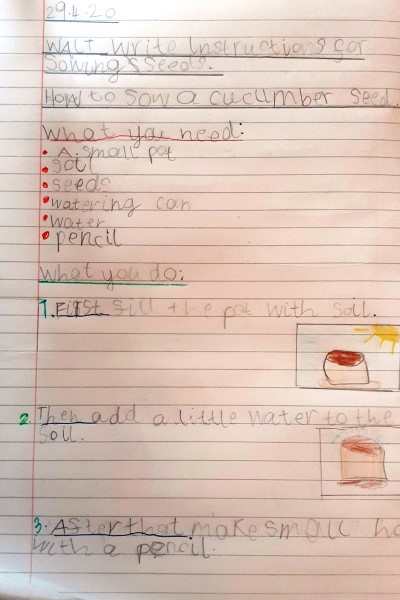 29.4.20
WALT write instructions for
Sowing seeds.
How to sow a cucumber seed.
What you need:
• A small pot
• soil
• seeds
• watering can
• water
• pencil
What you do:
1. First fill the pot with soil.
2. Then add a little water to the
soil.
3. After that make small ho
with a pencil.